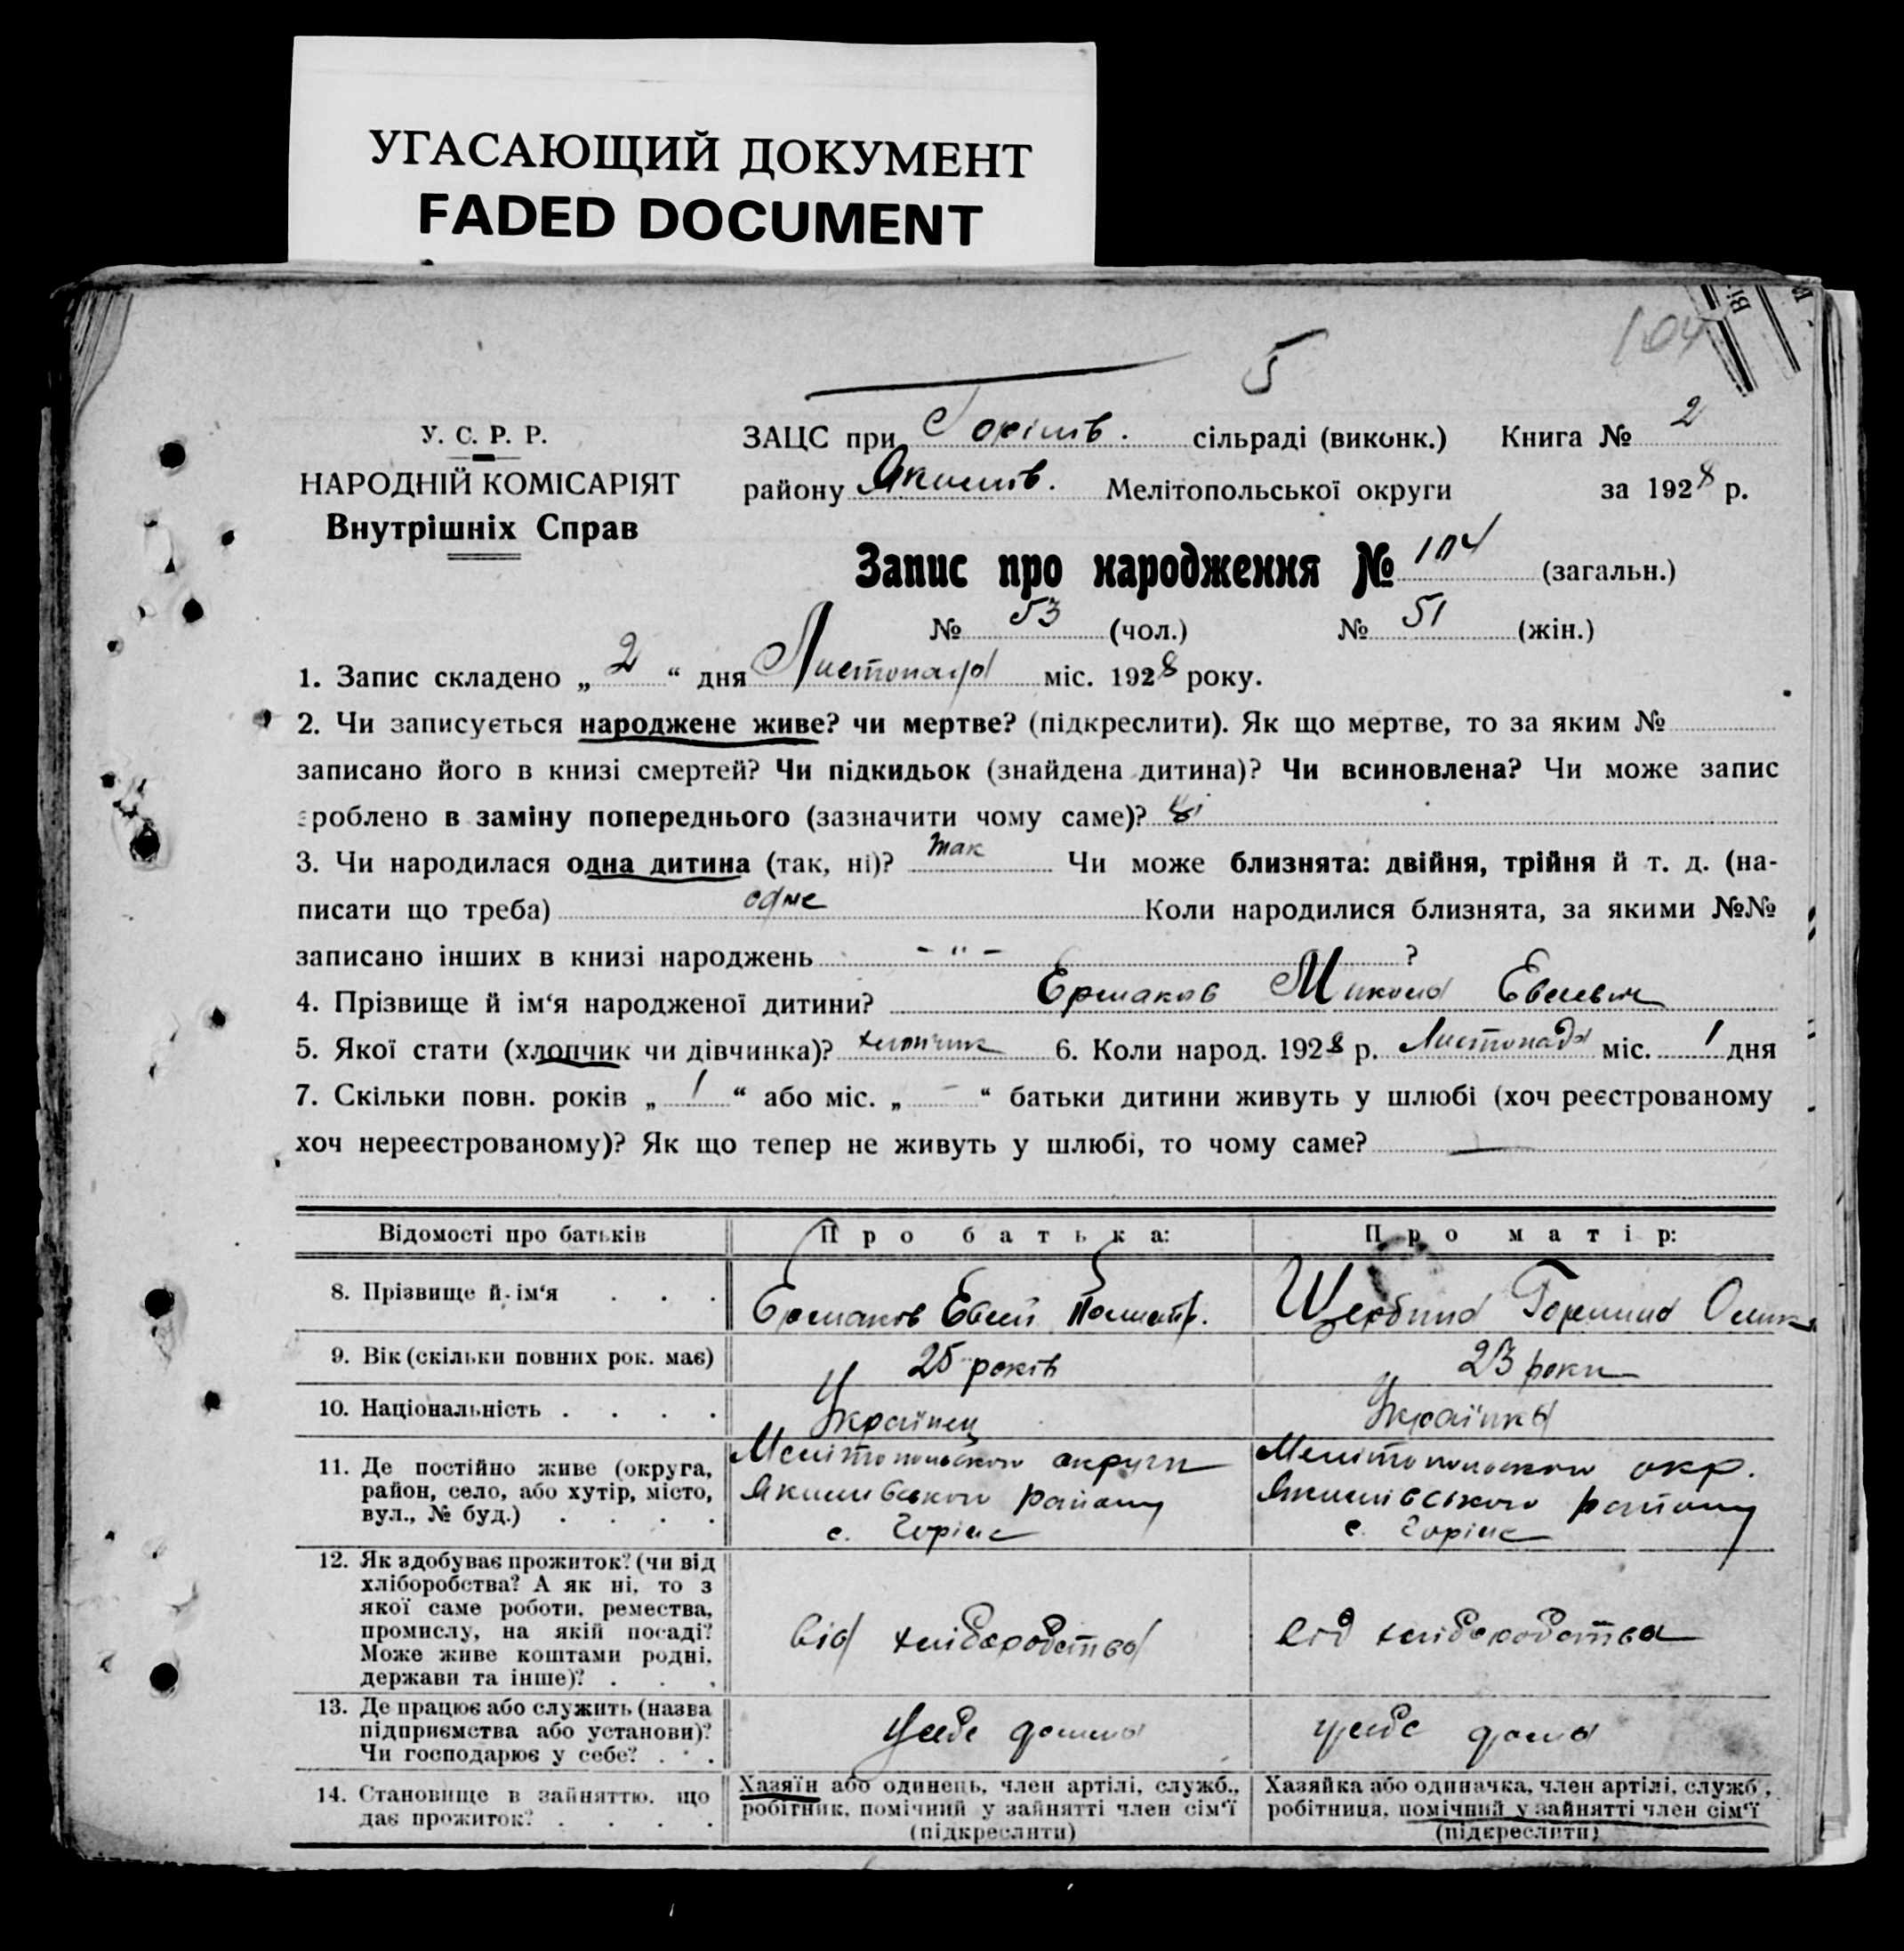 УГАСАЮЩИЙ ДОКУМЕНТ
FADED DOCUMENT
104
5
У. С. Р. Р.
НАРОДНІЙ КОМІСАРІЯТ
Внутрішніх Справ
ЗАЦС при сільраді (виконк.) Книга № 2
району Якимів. Мелітопольської округи за 1928 р.
Запис про народження № 104 (загальн.)
№ 53 (чол.) № 51 (жін.)
1. Запис складено „ 2 “ дня Листопада міс. 1928 року.
2. Чи записується народжене живе? чи мертве? (підкреслити). Як що мертве, то за яким №
записано його в книзі смертей? Чи підкидьок (знайдена дитина)? Чи всиновлена? Чи може запис
зроблено в заміну попереднього (зазначити чому саме)?
3. Чи народилася одна дитина (так, ні)? так Чи може близнята: двійня, трійня й т. д. (на-
писати що треба) одне Коли народилися близнята, за якими №№
записано інших в книзі народжень - " - ?
4. Прізвище й ім‘я народженої дитини? Ермаков Микола Евсеевич
5. Якої стати (хлопчик чи дівчинка)? хлопчик 6. Коли народ. 1928 р. Листопада міс. 1 дня
7. Скільки повн. років „ 1 “ або міс. „ - “ батьки дитини живуть у шлюбі (хоч реєстрованому
хоч нереєстрованому)? Як що тепер не живуть у шлюбі, то чому саме? —
Відомості про батьків Про батька: Про матір:
8. Прізвище й ім‘я . . . Ермаков Евсей Щербина
9. Вік (скільки повних рок. має) 25 років 23 роки
10. Національність . . . . Українец Українка
11. Де постійно живе (округа, Мелітопольского округи Мелітопольского окр.
район, село, або хутір, місто, Якимівського району Якимівського району
вул., № буд.) . . . . с. Горіле с. Горіле
12. Як здобуває прожиток? (чи від
хліборобства? А як ні, то з
якої саме роботи, ремества,
промислу, на якій посаді? від хліборобства від хліборобства
Може живе коштами родні,
держави та інше)? . . .
13. Де працює або служить (назва
підприємства або установи)? у себе дома у себе дома
Чи господарює у себе? . . .
14. Становище в зайняттю, що Хазяїн або одинець, член артілі, служб., Хазяйка або одиначка, член артілі, служб.,
дає прожиток? . . . . робітник, помічний у зайнятті член сім‘ї робітниця, помічний у зайнятті член сім‘ї
(підкреслити) (підкреслити)